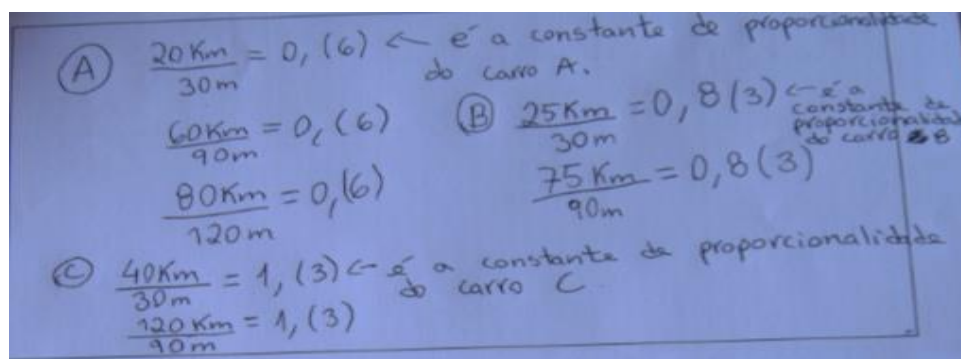 A 20 Km/30 m = 0,(6) ← é a constante de proporcionalidade
do carro A.
60 Km/90 m = 0,(6)
80 Km/120 m = 0,(6)
B 25 Km/30 m = 0,8(3) ← é a
constante de
proporcionalidad
do carro B
75 Km/90 m = 0,8(3)
C 40 Km/30 m = 1,(3) ← é a constante de proporcionalidade
do carro C
120 Km/90 m = 1,(3)